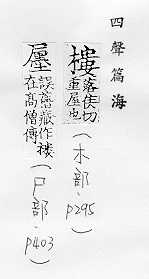 四聲篇海
樓 落侯切
重屋也 (木部·p295)
誤舊藏作楼
在高僧傳 (尸部·p403)